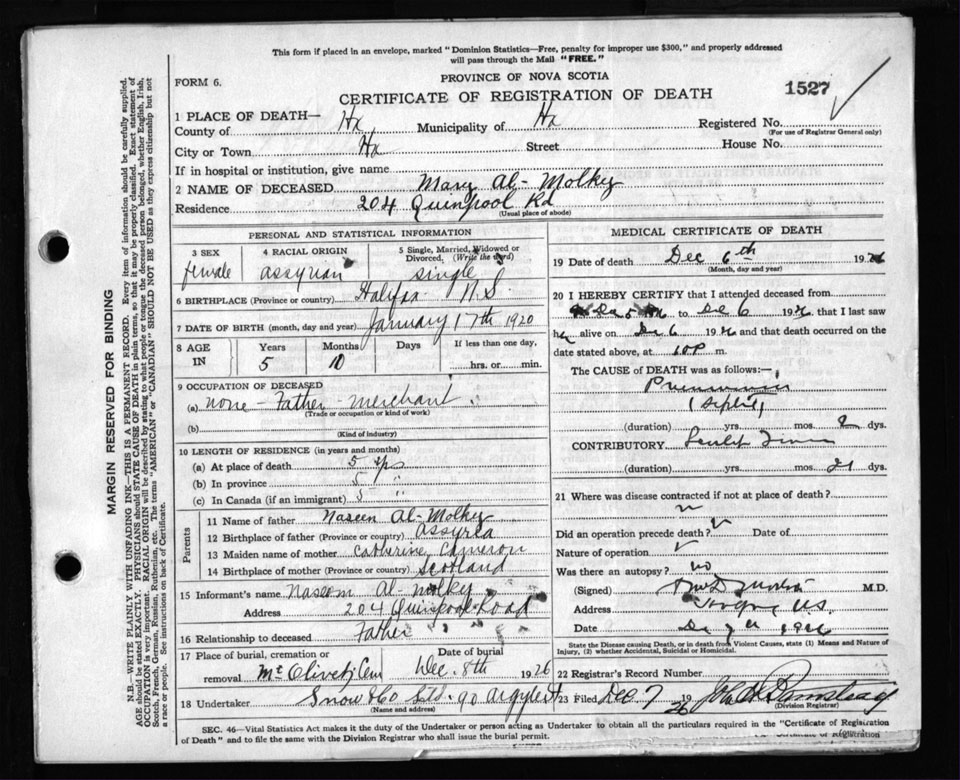 This form if placed in an envelope, marked "Dominion Statistics—Free, penalty for improper use $300," and properly addressed
will pass through the Mail "FREE."
FORM 6.
PROVINCE OF NOVA SCOTIA
CERTIFICATE OF REGISTRATION OF DEATH
1527
1 PLACE OF DEATH—
County of Hx Municipality of Hx Registered No.
(For use of Registrar General only)
City or Town Hx Street House No.
If in hospital or institution, give name
2 NAME OF DECEASED Mary Al-Molky
Residence 204 Quinpool Rd
(Usual place of abode)
PERSONAL AND STATISTICAL INFORMATION
3 SEX 4 RACIAL ORIGIN 5 Single, Married, Widowed or Divorced. (Write the word)
female assyrian single
6 BIRTHPLACE (Province or country) Halifax N.S.
7 DATE OF BIRTH (month, day and year) January 17th 1920
8 AGE IN Years Months Days If less than one day,
5 10 hrs. or min.
9 OCCUPATION OF DECEASED
(a) none - Father - merchant
(Trade or occupation or kind of work)
(b)
(Kind of industry)
10 LENGTH OF RESIDENCE (in years and months)
(a) At place of death 5 yrs
(b) In province 5 "
(c) In Canada (if an immigrant) 5 "
Parents
11 Name of father Naseen Al-Molky
12 Birthplace of father (Province or country) Assyria
13 Maiden name of mother Catherine Cameron
14 Birthplace of mother (Province or country) Scotland
15 Informant's name Naseem Al-Molky
Address 204 Quinpool Road
16 Relationship to deceased Father
17 Place of burial, cremation or removal Mt Olivet Cem
Date of burial Dec. 8th 1926
18 Undertaker Snow & Co Ltd. 90 Argyle St
(Name and address)
MEDICAL CERTIFICATE OF DEATH
19 Date of death Dec 6th 1926
(Month, day and year)
20 I HEREBY CERTIFY that I attended deceased from
Dec 5 to Dec 6 1926, that I last saw
her alive on Dec 6 1926 and that death occurred on the
date stated above, at 10 P m.
The CAUSE of DEATH was as follows:—
Pneumonia
(Septic)
(duration) yrs. mos. 2 dys.
CONTRIBUTORY Scarlet Fever
(duration) yrs. mos. 21 dys.
21 Where was disease contracted if not at place of death?
Did an operation precede death? Date of
Nature of operation
Was there an autopsy? no
(Signed) M.D.
Address
Date Dec 7th 1926
State the Disease causing Death, or in death from Violent Causes, state (1) Means and Nature of
Injury, (2) whether Accidental, Suicidal or Homicidal.
22 Registrar's Record Number
23 Filed Dec 7 1926
(Division Registrar)
SEC. 46—Vital Statistics Act makes it the duty of the Undertaker or person acting as Undertaker to obtain all the particulars required in the "Certificate of Registration
of Death" and to file the same with the Division Registrar who shall issue the burial permit.
Certificate of Registration
MARGIN RESERVED FOR BINDING
N.B.—WRITE PLAINLY WITH UNFADING INK—THIS IS A PERMANENT RECORD. Every item of information should be carefully supplied.
AGE should be stated EXACTLY. PHYSICIANS should STATE CAUSE OF DEATH in plain terms, so that it may be properly classified. Exact statement of
OCCUPATION is very important. RACIAL ORIGIN will be described by stating to what people or tongue the deceased person belonged, whether English, Irish,
Scotch, French, German, Russian, Ruthenian, etc. The terms "AMERICAN" or "CANADIAN" SHOULD NOT BE USED as they express citizenship but not
a race or people. See instructions on back of Certificate.